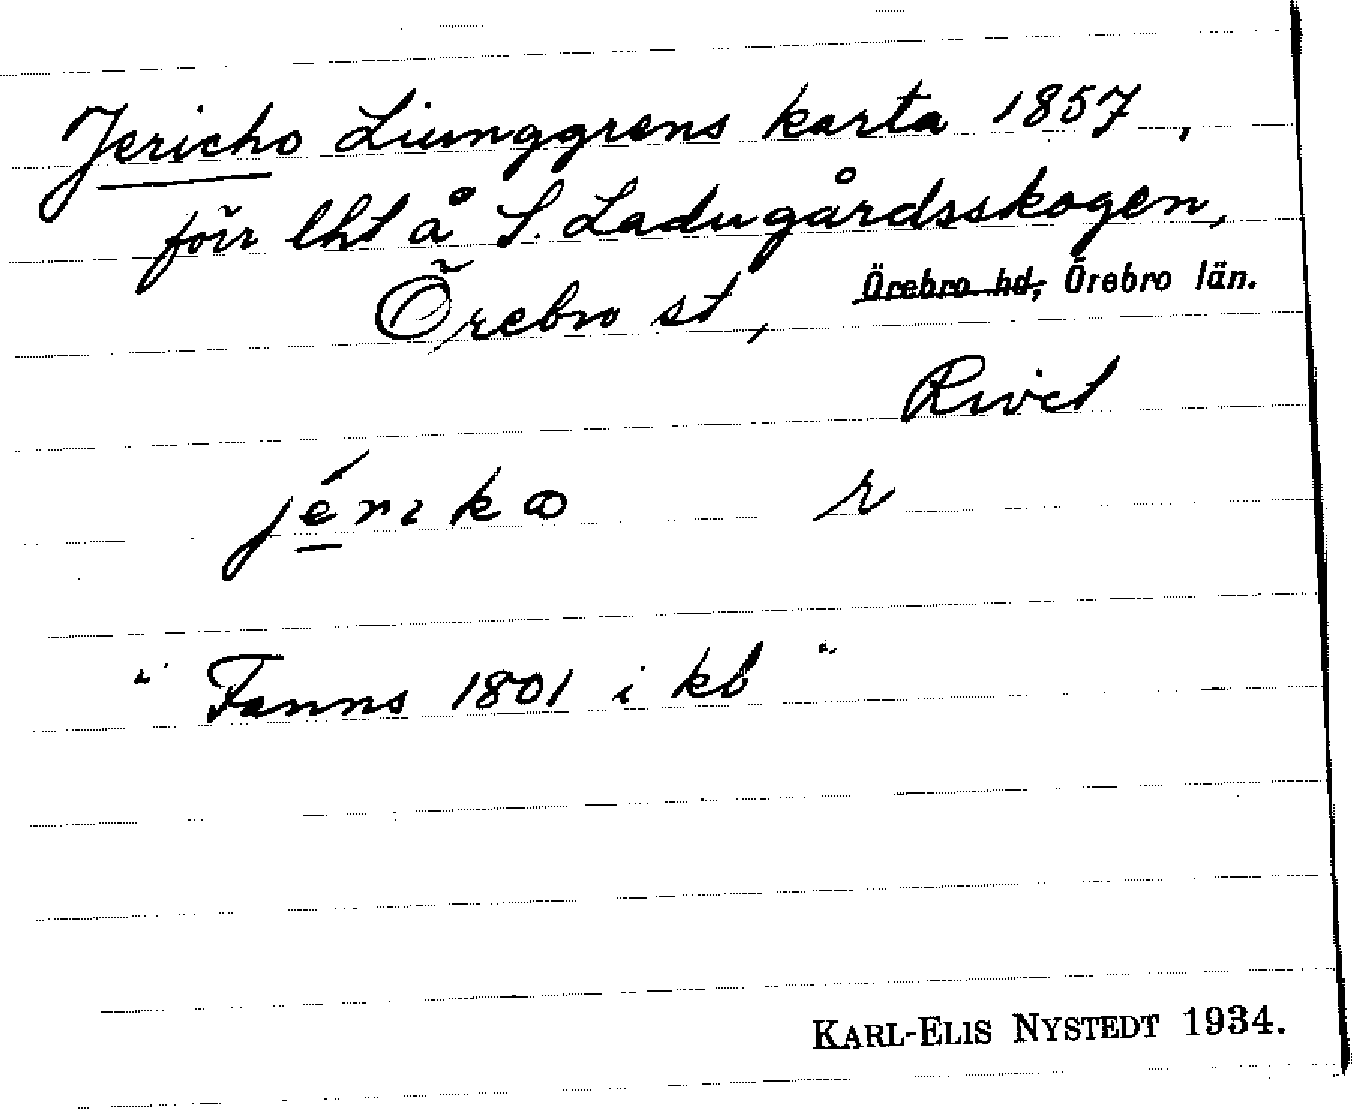 Jericho Ljunggrens karta 1857,
förr lht å S. Ladugårdsskogen,
Örebro st, Örebro hd, Örebro län.
Rivet
jériko r
"Fanns 1801 i kb"
KARL-ELIS NYSTEDT 1934.